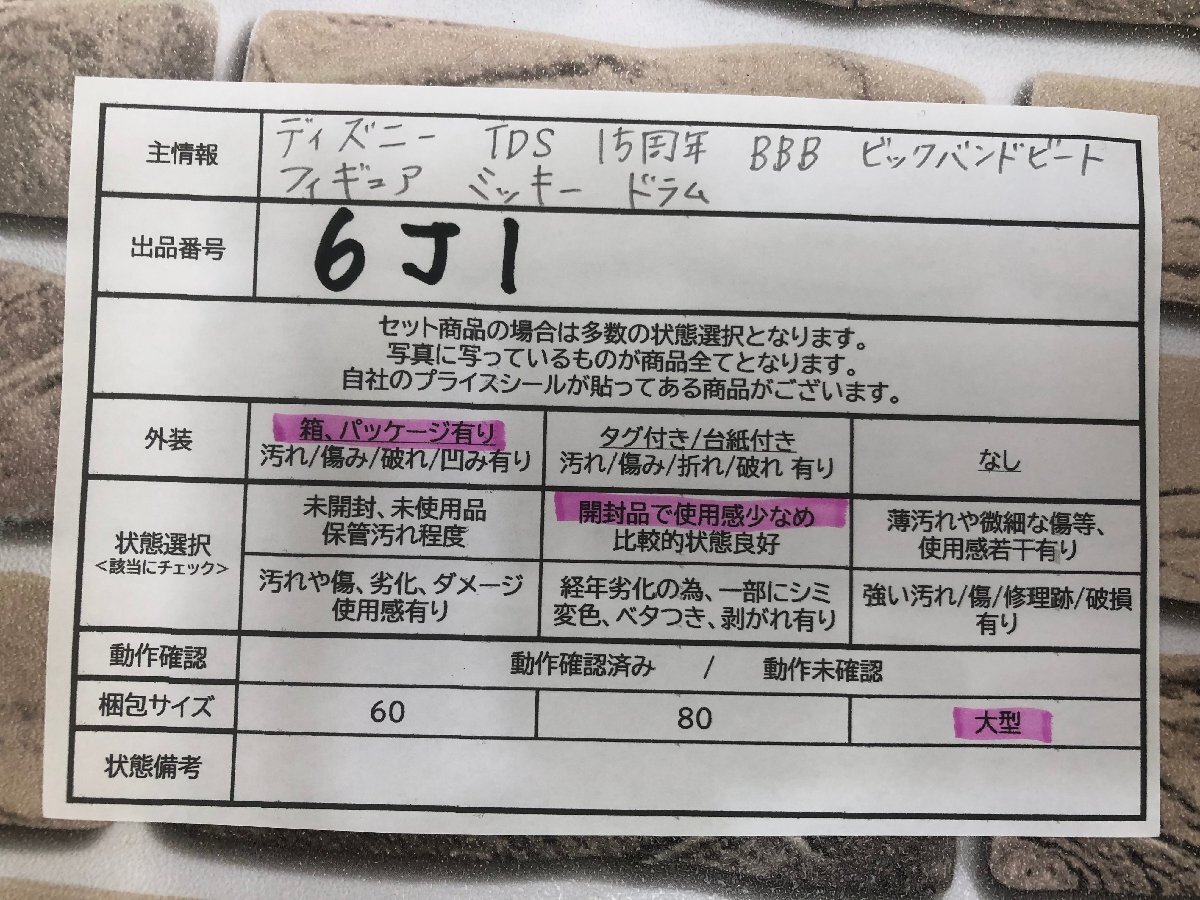 主情報
ディズニー TDS 15周年 BBB ビックバンドビート
フィギュア ミッキー ドラム
出品番号
6J1
セット商品の場合は多数の状態選択となります。
写真に写っているものが商品全てとなります。
自社のプライスシールが貼ってある商品がございます。
外装
箱、パッケージ有り
汚れ/傷み/破れ/凹み有り
タグ付き/台紙付き
汚れ/傷み/折れ/破れ 有り
なし
状態選択
<該当にチェック>
未開封、未使用品
保管汚れ程度
開封品で使用感少なめ
比較的状態良好
薄汚れや微細な傷等、
使用感若干有り
汚れや傷、劣化、ダメージ
使用感有り
経年劣化の為、一部にシミ
変色、ベタつき、剥がれ有り
強い汚れ/傷/修理跡/破損
有り
動作確認
動作確認済み / 動作未確認
梱包サイズ
60
80
大型
状態備考